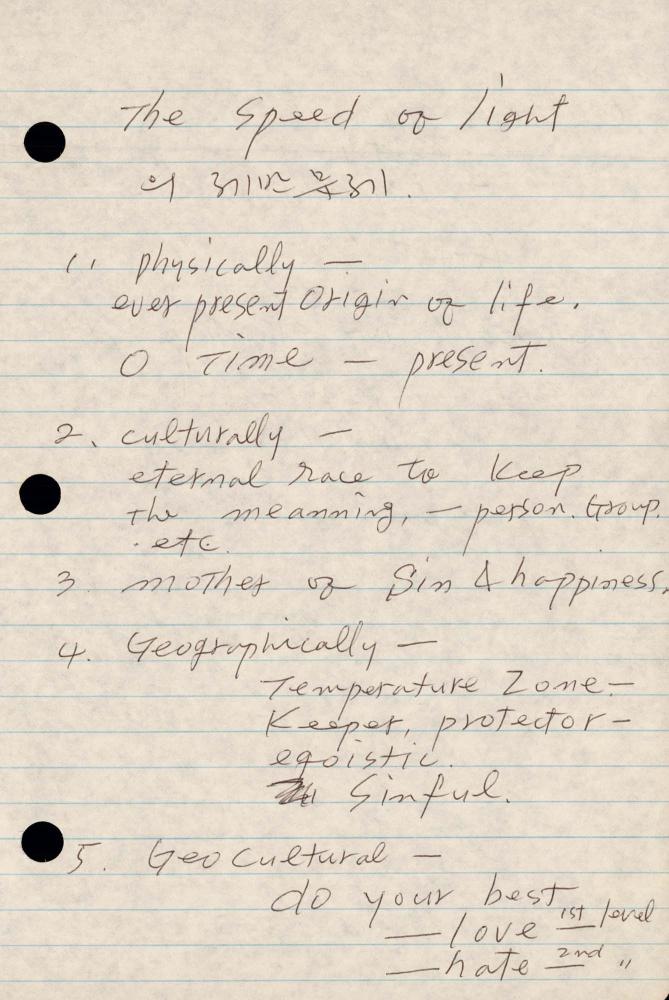 The Speed of light
의 제반문제.
1. physically —
ever present Origin of life.
0 Time — present.
2. culturally —
eternal race to Keep
The meanning, — person. Group.
. etc.
3. mother of Sin & happiness.
4. Geographically —
Temperature Zone. —
Keeper, protector —
egoistic.
Sinful.
5. Geo Cultural —
do your best
— love 1st level
— hate 2nd "